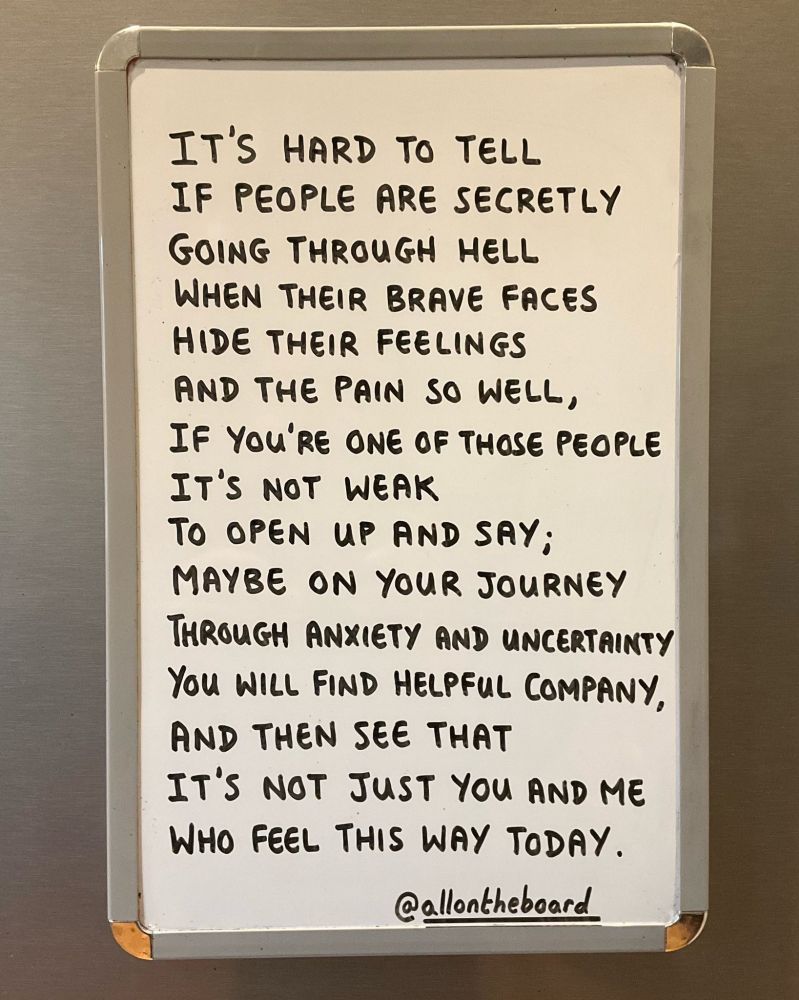 IT'S HARD TO TELL
IF PEOPLE ARE SECRETLY
GOING THROUGH HELL
WHEN THEIR BRAVE FACES
HIDE THEIR FEELINGS
AND THE PAIN SO WELL,
IF YOU'RE ONE OF THOSE PEOPLE
IT'S NOT WEAK
TO OPEN UP AND SAY;
MAYBE ON YOUR JOURNEY
THROUGH ANXIETY AND UNCERTAINTY
YOU WILL FIND HELPFUL COMPANY,
AND THEN SEE THAT
IT'S NOT JUST YOU AND ME
WHO FEEL THIS WAY TODAY.
@allontheboard